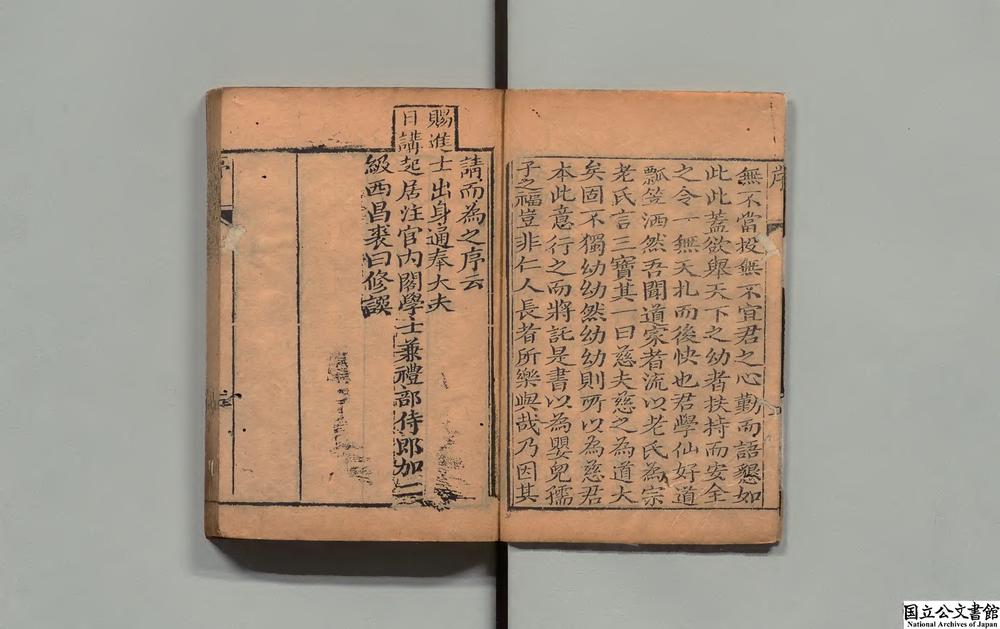 序
無不當投無不宜君之心勤而語懇如
此此蓋欲舉天下之幼者扶持而安全
之令一無夭札而後快也君學仙好道
瓢笠洒然吾聞道家者流以老氏為宗
老氏言三寶其一曰慈夫慈之為道大
矣固不獨幼幼然幼幼則所以為慈君
本此意行之而將託是書以為嬰兒孺
子之福豈非仁人長者所樂與哉乃因其
請而為之序云
賜進士出身通奉大夫
日講起居注官內閣學士兼禮部侍郎加二
級西昌裘曰修譔
国立公文書館
National Archives of Japan